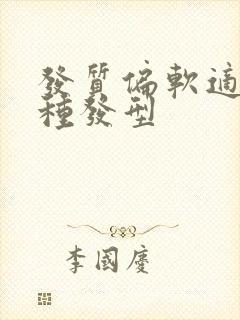 發質偏軟適
種發型
李國慶